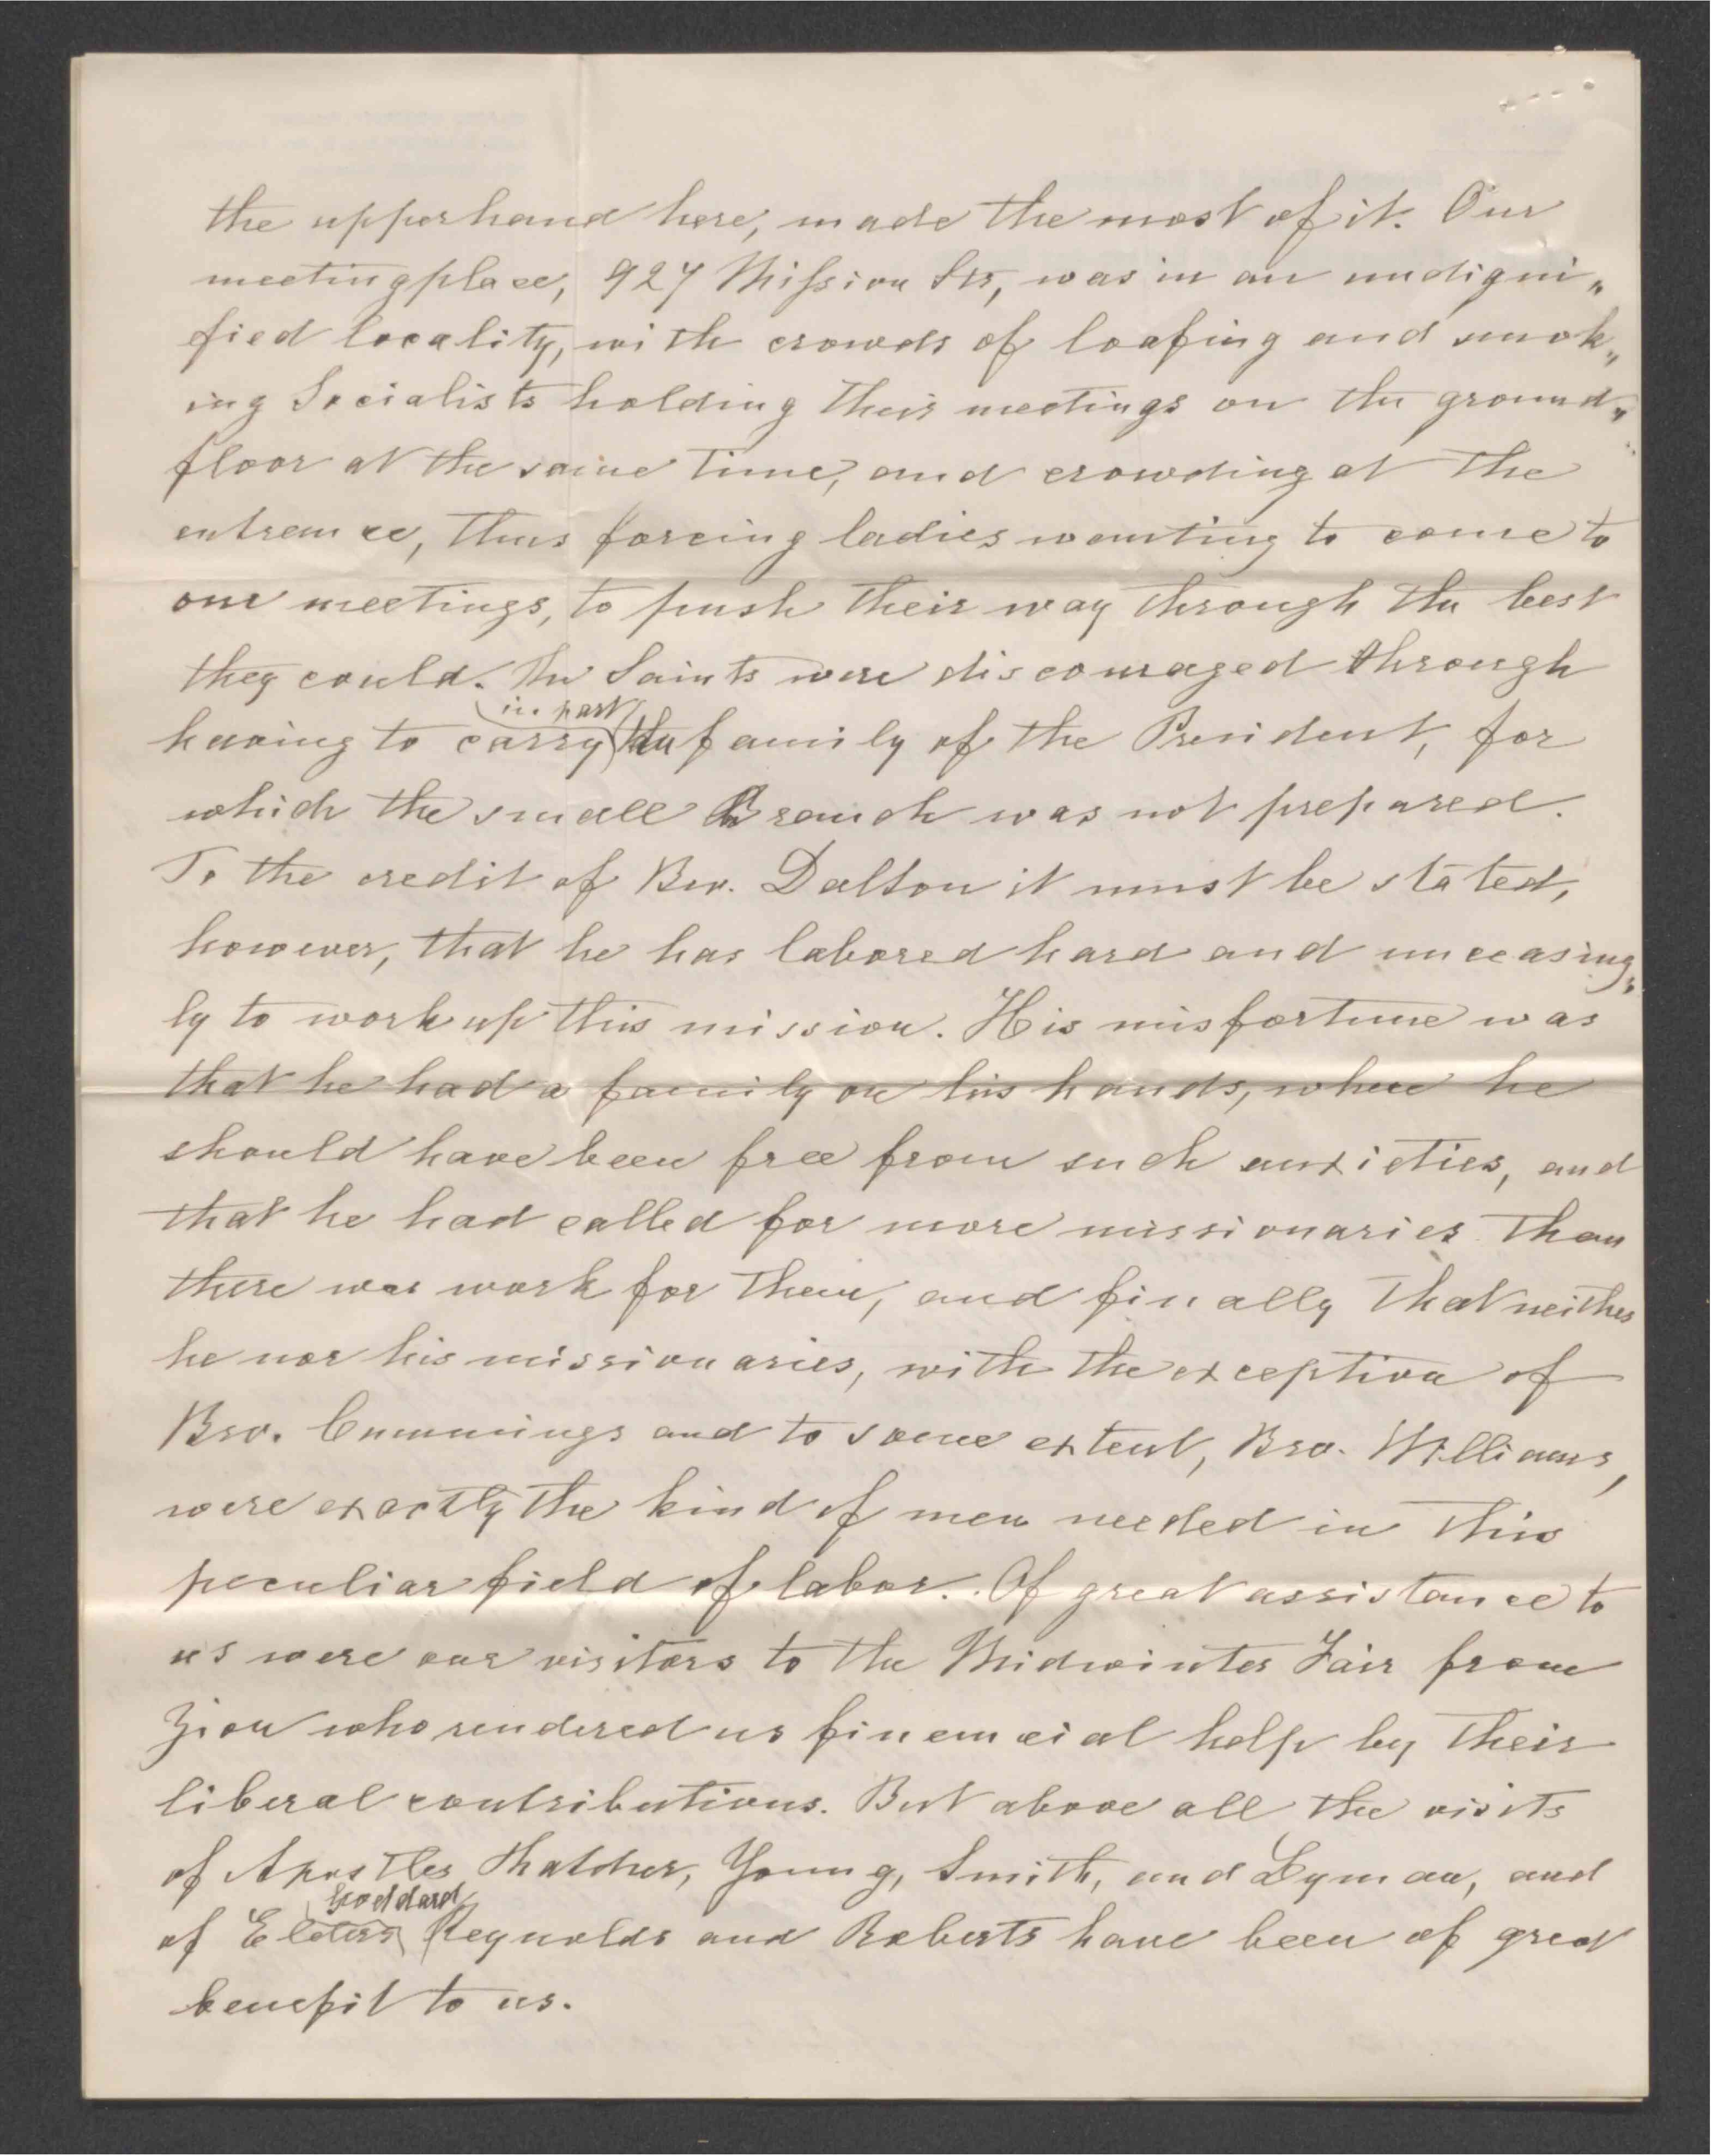 the upperhand here, made the most of it. Our
meetingplace, 927 Mission Str, was in an undigni„
fied locality, with crowds of loafing and smok„
ing Socialists holding their meetings on the ground„
floor at the same time, and crowding at the
entrance, thus forcing ladies wanting to come to
our meetings, to push their way through the best
they could. The Saints were discouraged through
in part
having to carry the family of the President, for
which the small Branch was not prepared.
To the credit of Bro. Dalton it must be stated,
however, that he has labored hard and unceasing„
ly to work up this mission. His misfortune was
that he had a family on his hands, where he
should have been free from such anxieties, and
that he had called for more missionaries than
there was work for them, and finally that neither
he nor his missionaries, with the exception of
Bro. Cummings and to some extent, Bro. Williams,
were exactly the kind of men needed in this
peculiar field of labor. Of great assistance to
us were our visitors to the Midwinter Fair from
Zion who rendered us financial help by their
liberal contributions. But above all the visits
of Apostles Thatcher, Young, Smith, and Lyman, and
Goddard
of Elders Reynolds and Roberts have been of great
benefit to us.